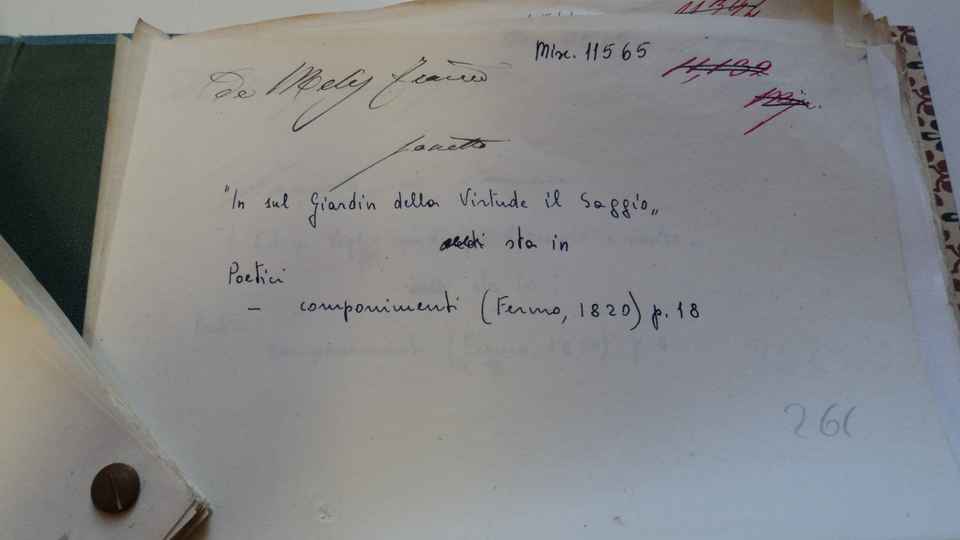 Misc. 11565
De Mely
Sonetto
"In sul Giardin della Virtude il Saggio„
sta in
Poetici
— componimenti (Fermo, 1820) p. 18
266